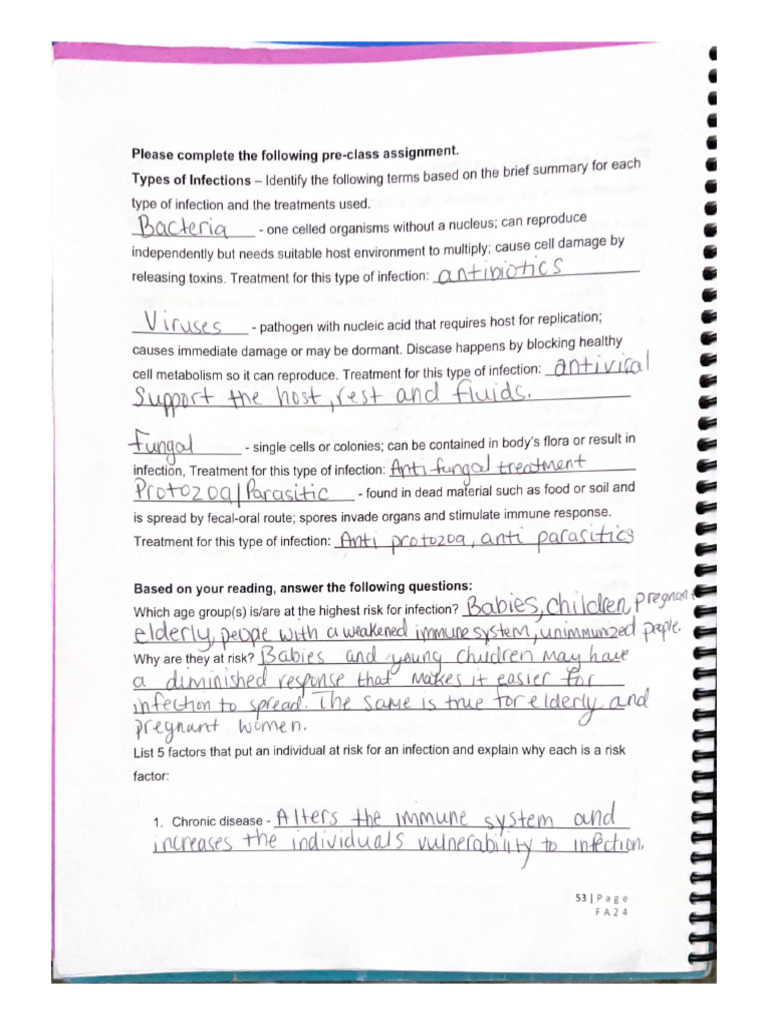 Please complete the following pre-class assignment.
Types of Infections – Identify the following terms based on the brief summary for each
type of infection and the treatments used.
Bacteria - one celled organisms without a nucleus; can reproduce
independently but needs suitable host environment to multiply; cause cell damage by
releasing toxins. Treatment for this type of infection: antibiotics
Viruses - pathogen with nucleic acid that requires host for replication;
causes immediate damage or may be dormant. Discase happens by blocking healthy
cell metabolism so it can reproduce. Treatment for this type of infection: antivical
Support the host, rest and fluids.
Fungal - single cells or colonies; can be contained in body's flora or result in
infection, Treatment for this type of infection: Anti fungal treatment
Protozoa/Parasitic - found in dead material such as food or soil and
is spread by fecal-oral route; spores invade organs and stimulate immune response.
Treatment for this type of infection: Anti protozoa, anti parasitics
Based on your reading, answer the following questions:
Which age group(s) is/are at the highest risk for infection? Babies, children, pregnant
elderly, people with a weakened immune system, unimmunized people.
Why are they at risk? Babies and young children may have
a diminished response that makes it easier for
infection to spread. The same is true for elderly and
pregnant women.
List 5 factors that put an individual at risk for an infection and explain why each is a risk
factor:
1. Chronic disease - Alters the immune system and
increases the individuals vulnerability to infection.
53 | Page
FA24